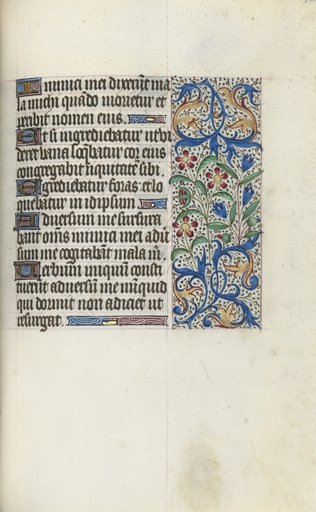 Inimici mei dixerūt ma
la michi quādo morietur et
peribit nomen eius.
Et si ingrediebatur ut vi
deret vana loq̄batur cor eius
congregabit iniquitatē sibi.
Egrediebatur foras et lo
quebatur in idipsum
Adversum me susurra
bant om̄s inimici mei adv̄
sum me cogitabāt mala m̄.
Verbum iniquū consti
tuerūt adversū me nūquid
qui dormit non adiciet ut
resurgat.